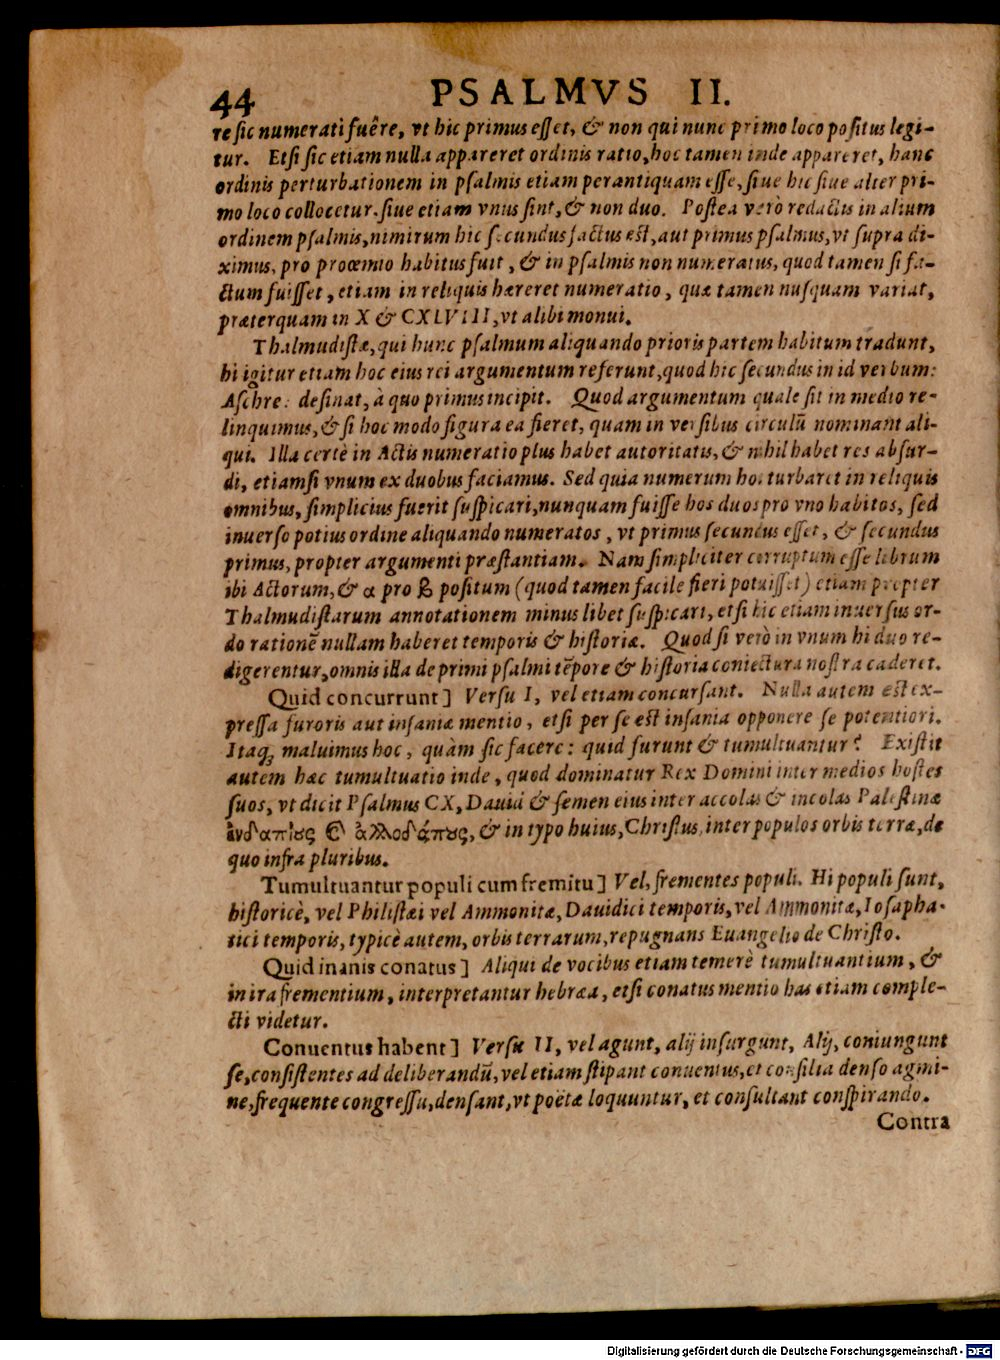 44 PSALMVS II.
re sic numerati fuêre, vt hic primus esset, & non qui nunc primo loco positus legi-
tur. Etsi sic etiam nulla appareret ordinis ratio, hoc tamen inde appareret, hanc
ordinis perturbationem in psalmis etiam perantiquam esse, siue hic siue alter pri-
mo loco collocetur, siue etiam vnus sint, & non duo. Postea verò redactis in alium
ordinem psalmis, nimirum hic secundus factus est, aut primus psalmus, vt supra di-
ximus, pro proœmio habitus fuit, & in psalmis non numeratus, quod tamen si fa-
ctum fuisset, etiam in reliquis hæreret numeratio, quæ tamen nusquam variat,
præterquam in X & CXLVIII, vt alibi monui.
Thalmudistæ, qui hunc psalmum aliquando prioris partem habitum tradunt,
hi igitur etiam hoc eius rei argumentum referunt, quod hic secundus in id verbum:
Aschre: desinat, à quo primus incipit. Quod argumentum quale sit in medio re-
linquimus, & si hoc modo figura ea fieret, quam in versibus circulũ nominant ali-
qui. Illa certè in Actis numeratio plus habet autoritatis, & nihil habet res absur-
di, etiamsi vnum ex duobus faciamus. Sed quia numerum hoc turbaret in reliquis
omnibus, simplicius fuerit suspicari, nunquam fuisse hos duos pro vno habitos, sed
inuerso potius ordine aliquando numeratos, vt primus secundus esset, & secundus
primus, propter argumenti præstantiam. Nam simpliciter corruptum esse librum
ibi Actorum, & α pro β positum (quod tamen facile fieri potuisset) etiam propter
Thalmudistarum annotationem minus libet suspicari, etsi hic etiam inuersus or-
do rationẽ nullam haberet temporis & historiæ. Quod si verò in vnum hi duo re-
digerentur, omnis illa de primi psalmi tẽpore & historia coniectura nostra caderet.
Quid concurrunt] Versu I, vel etiam concursant. Nulla autem est ex-
pressa furoris aut insaniæ mentio, etsi per se est insania opponere se potentiori.
Itaq; maluimus hoc, quàm sic facere: quid furunt & tumultuantur? Existit
autem hæc tumultuatio inde, quod dominatur Rex Domini inter medios hostes
suos, vt dicit Psalmus CX, Dauid & semen eius inter accolas & incolas Palestinæ
& in typo huius, Christus, inter populos orbis terræ, de
quo infra pluribus.
Tumultuantur populi cum fremitu] Vel, frementes populi. Hi populi sunt,
historicè, vel Philistæi vel Ammonitæ, Dauidici temporis, vel Ammonitæ, Iosapha-
tici temporis, typicè autem, orbis terrarum, repugnans Euangelio de Christo.
Quid inanis conatus] Aliqui de vocibus etiam temerè tumultuantium, &
in ira frementium, interpretantur hebræa, etsi conatus mentio has etiam comple-
cti videtur.
Conuentus habent] Versu II, vel agunt, alij insurgunt, Alij, coniungunt
se, consistentes ad deliberandũ, vel etiam stipant conuentus, et consilia denso agmi-
ne, frequente congressu, densant, vt poëtæ loquuntur, et consultant conspirando.
Contra
Digitalisierung gefördert durch die Deutsche Forschungsgemeinschaft - DFG